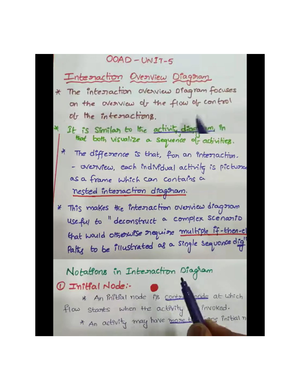 OOAD-UNIT-5
Interaction Overview Diagram
* The interaction overview Diagram focuses
on the overview of the flow of control
of the interactions.
* It is Similar to the activity diagram, in
that both visualize a sequence of activities.
* The difference is that, for an interaction
- overview, each individual activity is pictured
as a frame which can contains a
nested interaction diagram.
* This makes the interaction overview diagram
useful to "deconstruct a complex scenario
that would otherwise require multiple if-then-el
Paths to be illustrated as a single sequence dig
Notations in Interaction Diagram
① Initial Node:-
* An initial node is node at which
flow starts when the activity invoked.
* An activity may have more initial n